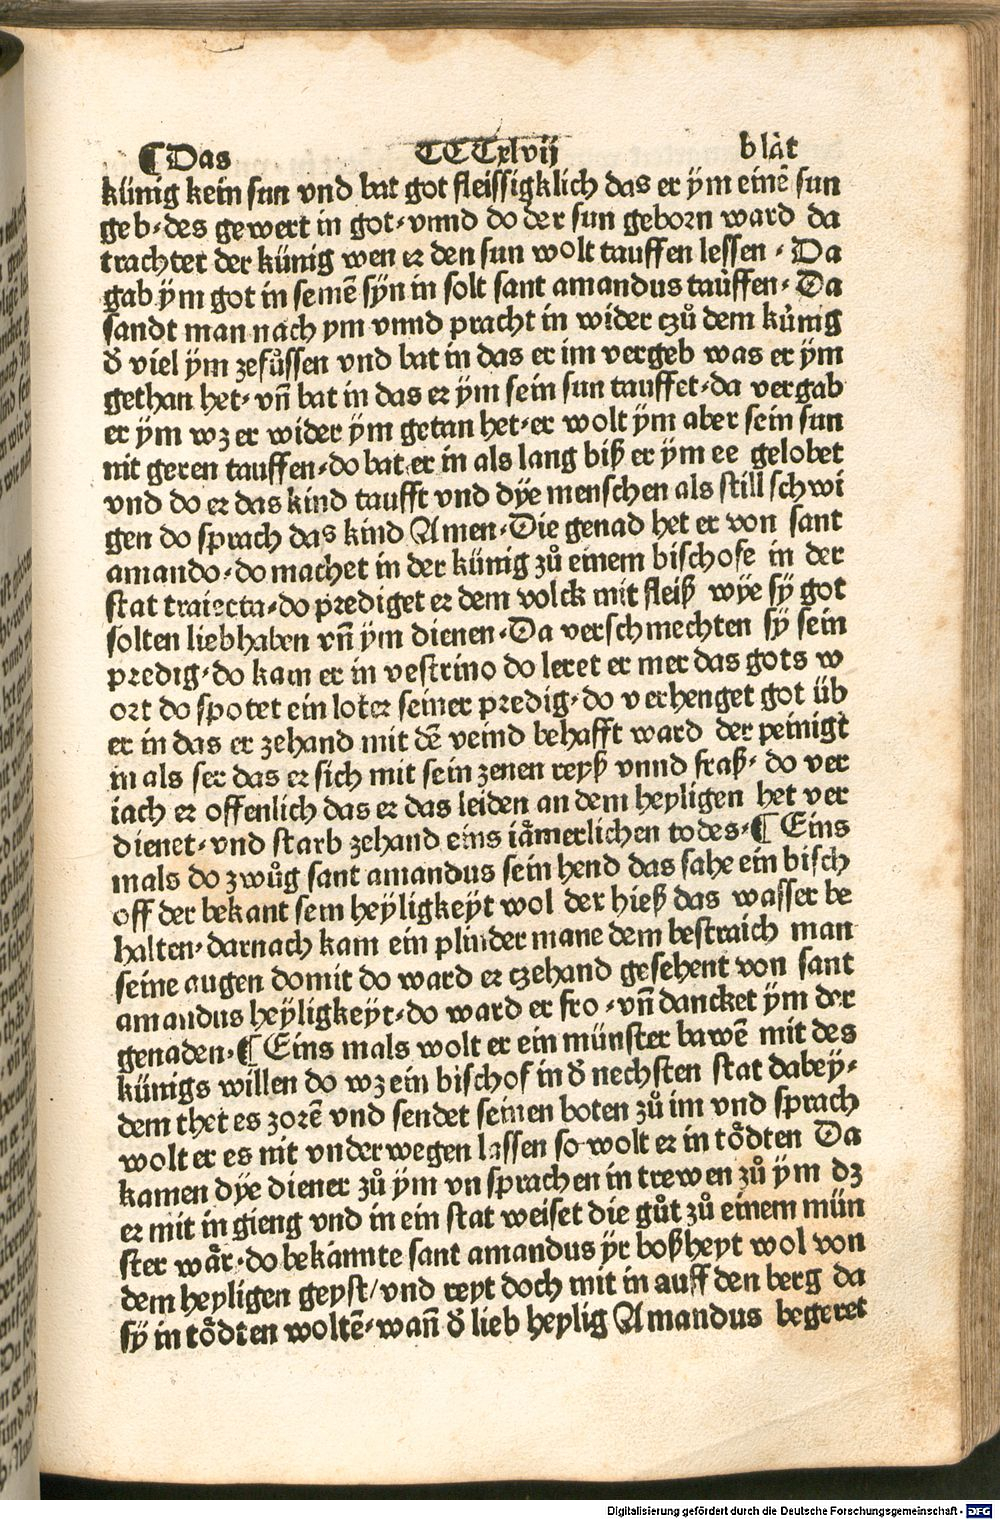 ¶Das CCCxlvij blat
künig kein sun vnd bat got fleissigklich das er ÿm einē sun
geb·des gewert in got·vnnd do der sun geborn ward da
trachtet der künig wen er den sun wolt tauffen lessen·Da
gab ÿm got in seinē sÿn in solt sant amandus tauffen·Da
sandt man nach ym vnnd pracht in wider czů dem künig
ð viel ÿm zefůssen vnd bat in das er im vergeb was er ÿm
gethan het·vn̄ bat in das er ÿm sein sun tauffet·da vergab
er ÿm wz er wider ÿm getan het·er wolt ÿm aber sein sun
nit geren tauffen·do bat er in als lang biß er ÿm ee gelobet
vnd do er das kind taufft vnd dÿe menschen als still schwi
gen do sprach das kind Amen·Die genad het er von sant
amando·do machet in der künig zů einem bischofe in der
stat traiecta·do prediget er dem volck mit fleiß wÿe sÿ got
solten liebhaben vn̄ ÿm dienen·Da verschmechten sÿ sein
predig·do kam er in vestrino do leret er mer das gots w
ort do spotet ein loter seiner predig·do verhenget got üb
er in das er zehand mit dē veind behafft ward der peinigt
in als ser das er sich mit sein zenen reyß vnnd fraß·do ver
iach er offenlich das er das leiden an dem heyligen het ver
dienet·vnd starb zehand eins iämerlichen todes·¶Eins
mals do zwůg sant amandus sein hend das sahe ein bisch
off der bekant sein heÿligkeÿt wol der hieß das wasser be
halten·darnach kam ein plinder mane dem bestraich man
seine augen domit do ward er czehand gesehent von sant
amandus heÿligkeyt·do ward er fro·vn̄ dancket ÿm der
genaden·¶Eins mals wolt er ein münster bawē mit des
künigs willen do wz ein bischof in ð nechsten stat dabey·
dem thet es zorē vnd sendet seinen boten zů im vnd sprach
wolt er es nit vnderwegen lassen so wolt er in tödten Da
kamen dÿe diener zů ÿm vn sprachen in trewen zů ÿm dz
er mit in gieng vnd in ein stat weiset die gůt zů einem mün
ster wär·do bekannte sant amandus ÿr boßheyt wol von
dem heyligen geyst/vnd reyt doch mit in auff den berg da
sÿ in tödten woltē·wan̄ ð lieb heylig Amandus begeret
Digitalisierung gefördert durch die Deutsche Forschungsgemeinschaft - DFG